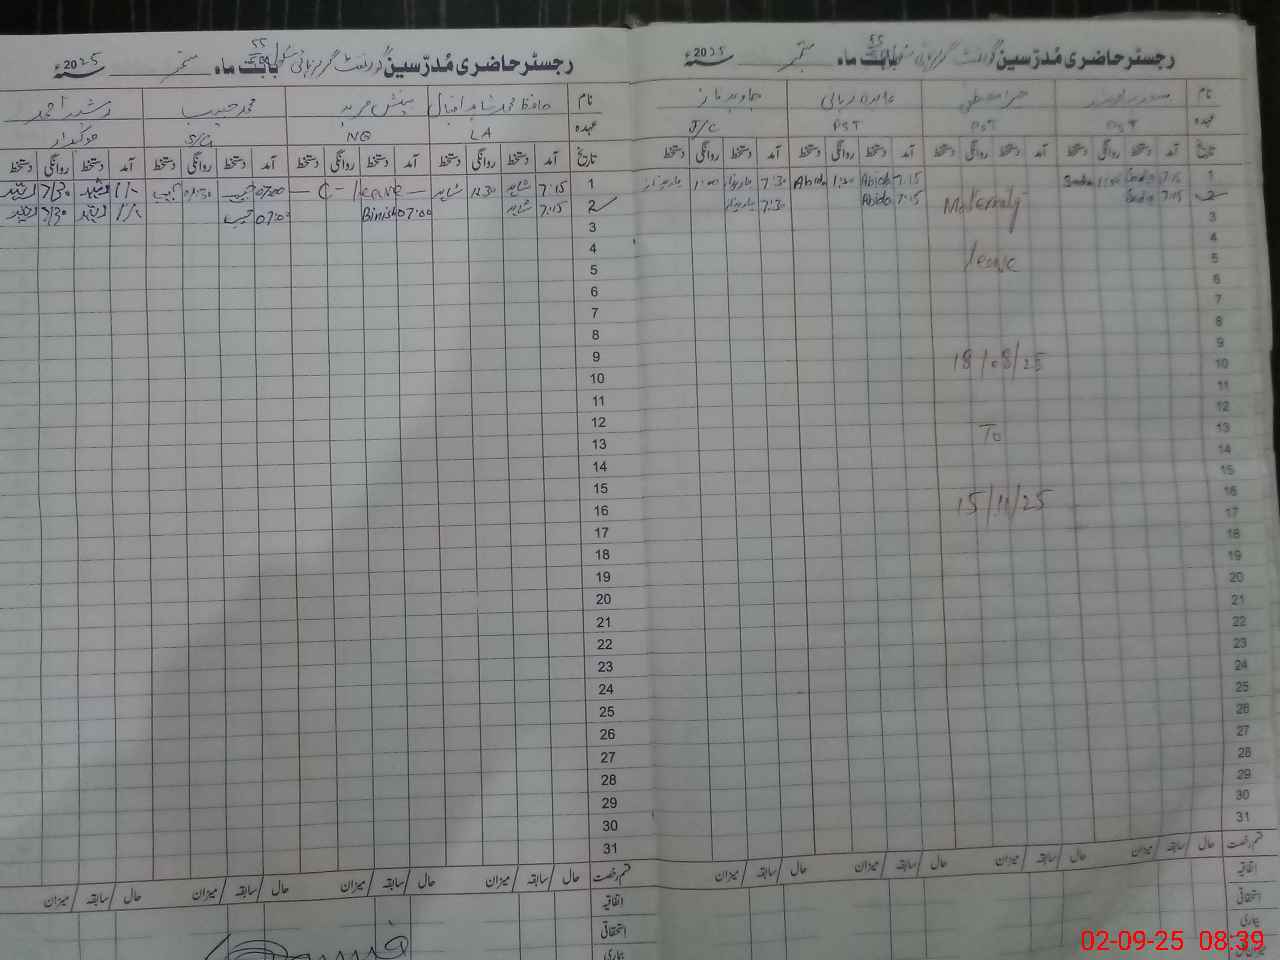 رجسٹر حاضری مُدرّسین گورنمنٹ گرلز ہائی سکول بابت ماہ ستمبر 2025ء
نام
عہدہ PST PST PST J/C
تاریخ آمد دستخط روانگی دستخط آمد دستخط روانگی دستخط آمد دستخط روانگی دستخط آمد دستخط روانگی دستخط
1 7:15 Abida 1:30 Abida 7:30 1:00
2 7:15 Abida 7:30
Maternity
3
4
5
leave
6
7
8
9
10
18/08/25
11
12
13
To
14
15
16
15/11/25
17
18
19
20
21
22
23
24
25
26
27
28
29
30
31
قسم رخصت حال / سابقہ / میزان حال / سابقہ / میزان حال / سابقہ / میزان حال / سابقہ / میزان
اتفاقیہ
استحقاقی
بیماری
رجسٹر حاضری مُدرّسین گورنمنٹ گرلز ہائی سکول بابت ماہ ستمبر 2025ء
نام حافظ محمد شاہد اقبال محمد حبیب رشید احمد
عہدہ LA NQ S/G چوکیدار
تاریخ آمد دستخط روانگی دستخط آمد دستخط روانگی دستخط آمد دستخط روانگی دستخط آمد دستخط روانگی دستخط
1 7:15 شاہد شاہد — C - leave — 07:00 حبیب حبیب
2 7:15 شاہد 07:00 Binish 07:00 حبیب
3
4
5
6
7
8
9
10
11
12
13
14
15
16
17
18
19
20
21
22
23
24
25
26
27
28
29
30
31
قسم رخصت حال / سابقہ / میزان حال / سابقہ / میزان حال / سابقہ / میزان حال / سابقہ / میزان
اتفاقیہ
استحقاقی
بیماری
02-09-25 08:39